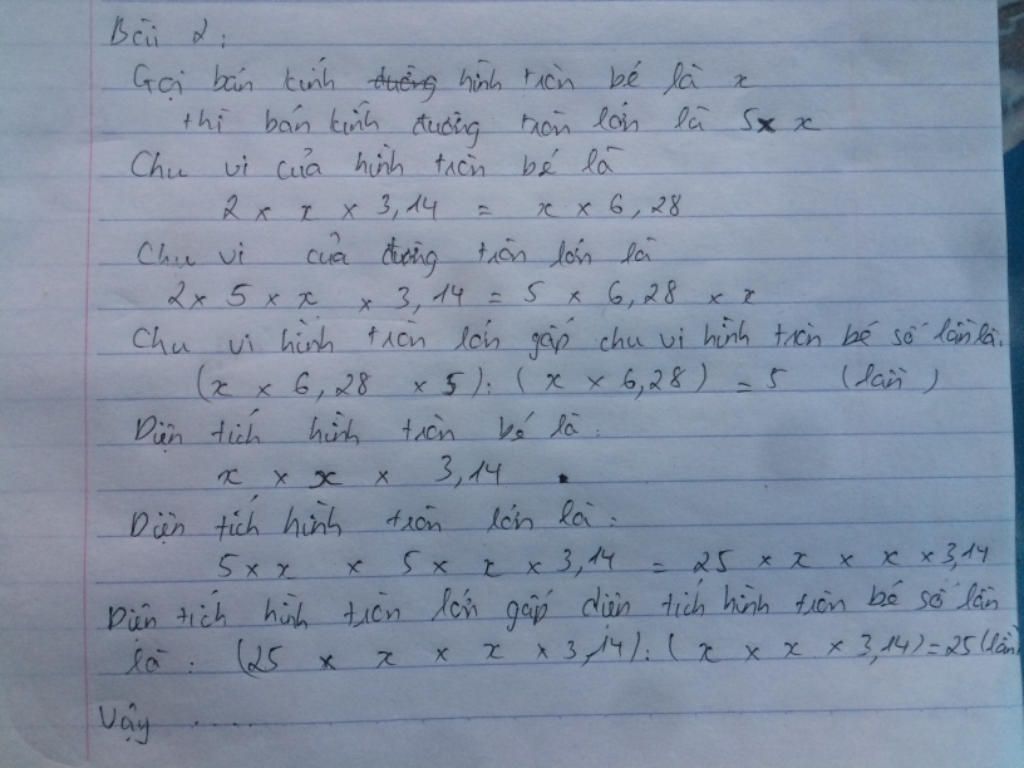 Bài 2:
Gọi bán kính đường hình tròn bé là x
thì bán kính đường tròn lớn là 5 x x
Chu vi của hình tròn bé là
2 x x x 3,14 = x x 6,28
Chu vi của đường tròn lớn là
2 x 5 x x x 3,14 = 5 x 6,28 x x
Chu vi hình tròn lớn gấp chu vi hình tròn bé số lần là:
(x x 6,28 x 5) : (x x 6,28) = 5 (lần)
Diện tích hình tròn bé là:
x x x x 3,14
Diện tích hình tròn lớn là:
5 x x x 5 x x x 3,14 = 25 x x x x x 3,14
Diện tích hình tròn lớn gấp diện tích hình tròn bé số lần
là: (25 x x x x x 3,14) : (x x x x 3,14) = 25 (lần)
Vậy .....